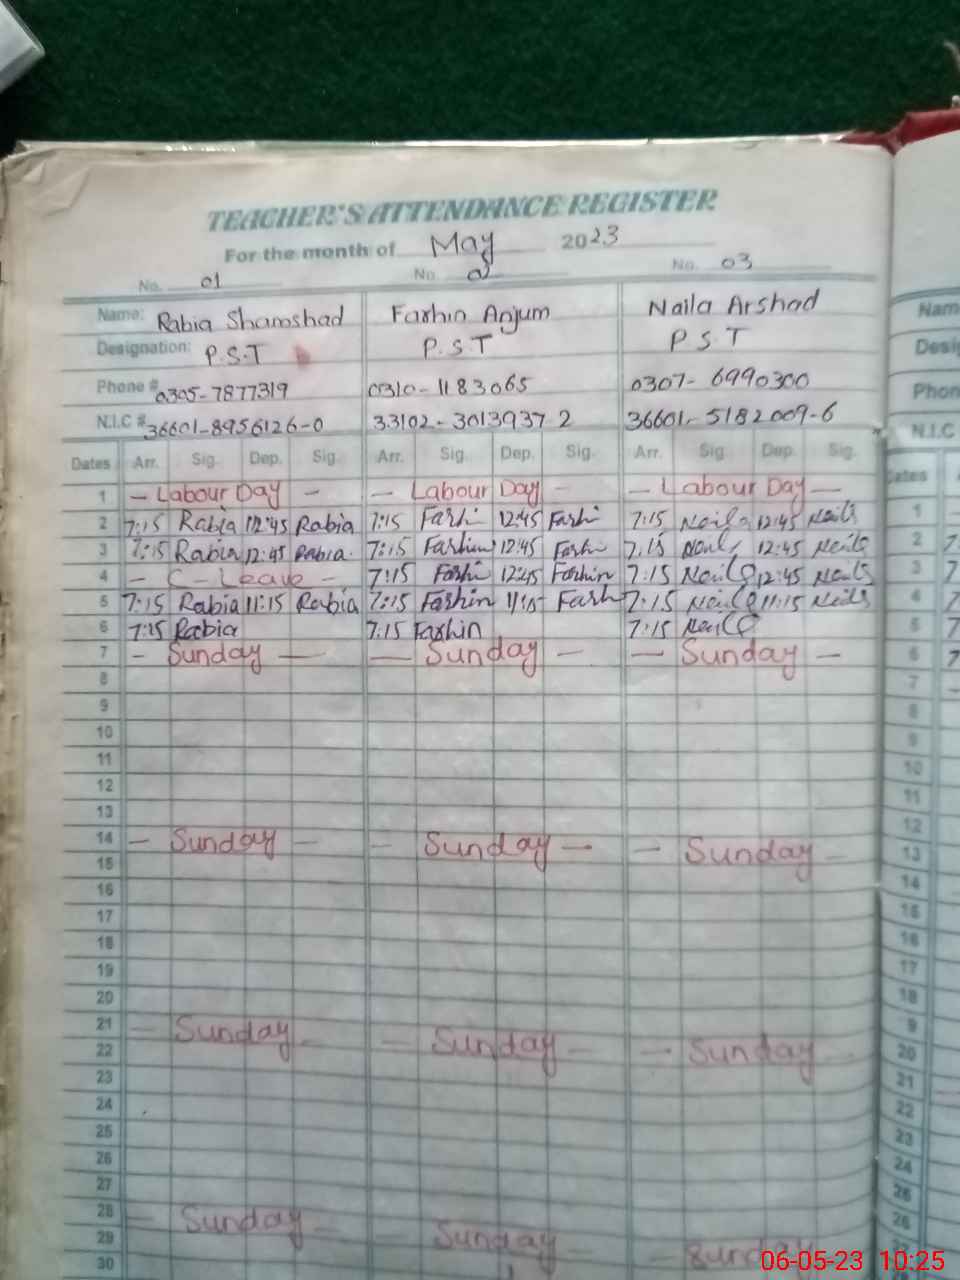 TEACHER'S ATTENDANCE REGISTER
For the month of May 2023
No. 01 No. 2 No. 03
Name: Rabia Shamshad Farhin Anjum Naila Arshad
Designation: P.S.T P.S.T P S T
Phone # 0305-7877319 0310-1183065 0307-6990300
N.I.C # 36601-8956126-0 33102-3013937-2 36601-5182009-6
Dates Arr. Sig. Dep. Sig. Arr. Sig. Dep. Sig. Arr. Sig. Dep. Sig.
1 - Labour Day - - Labour Day - - Labour Day -
2 7:15 Rabia 12:45 Rabia 7:15 Farhi 12:45 Farhi 7:15 Naila 12:45 Naila
3 7:15 Rabia 12:45 Rabia 7:15 Farhin 12:45 Farhi 7:15 Naila 12:45 Naila
4 - C-Leave - 7:15 Farhi 12:45 Farhin 7:15 Naila 12:45 Naila
5 7:15 Rabia 11:15 Rabia 7:15 Farhin 11:15 Farh 7:15 Naila 11:15 Naila
6 7:15 Rabia 7:15 Farhin 7:15 Naila
7 - Sunday - - Sunday - - Sunday -
8
9
10
11
12
13
14 - Sunday - - Sunday - - Sunday -
15
16
17
18
19
20
21 - Sunday - - Sunday - - Sunday -
22
23
24
25
26
27
28 - Sunday - - Sunday - - Sunday
29
30
Nam
Desig
Phon
N.I.C
Dates
1
2 7
3 7
4 7
5 7
6 7
7
8
9
10
11
12
13
14
15
16
17
18
9
20
21
22
23
24
25
26
06-05-23 10:25